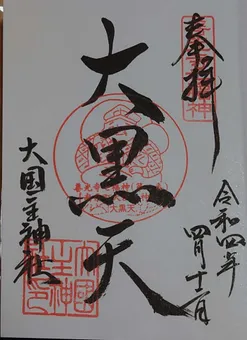 奉拝
令和四年
四月十一日
大黒天
大国主神社
大黒天